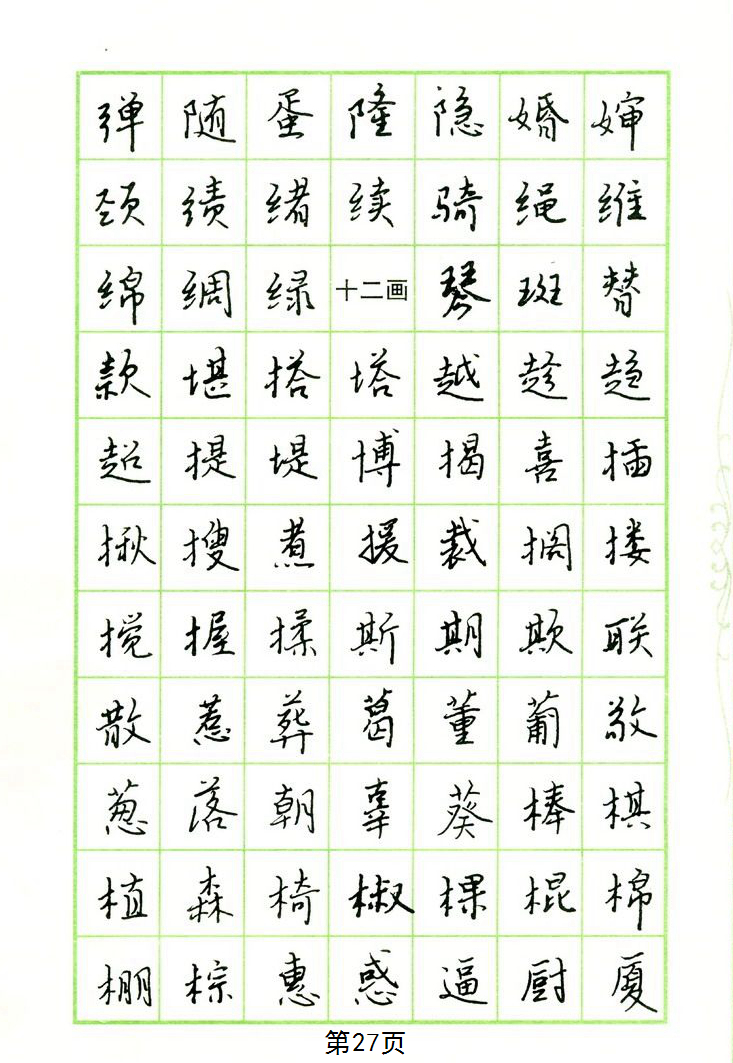 弹随蛋隆隐婚婶
颈绩绪续骑绳维
绵绸绿十二画琴斑替
款堪搭塔越趁趋
超提堤博揭喜插
揪搜煮援裁搁搂
搅握揉斯期欺联
散惹葬葛董葡敬
葱落朝辜葵棒棋
植森椅椒棵棍棉
棚棕惠惑逼厨厦
第27页